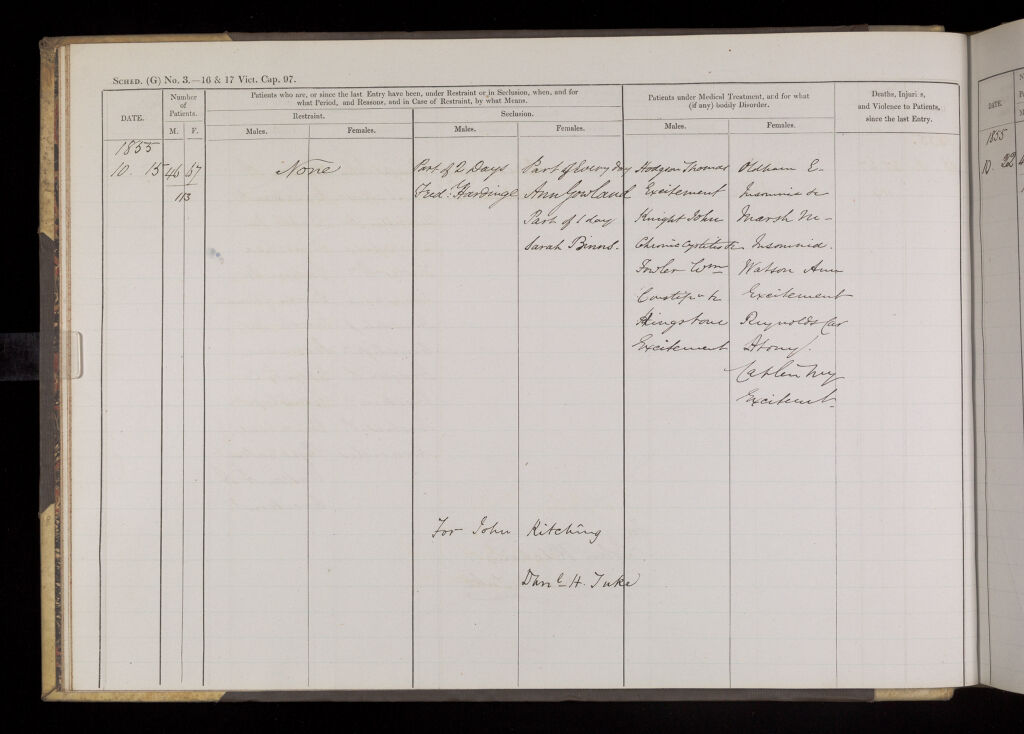 Sched. (G) No. 3.—16 & 17 Vict. Cap. 97.
DATE.
Number of Patients.
M. F.
Patients who are, or since the last Entry have been, under Restraint or in Seclusion, when, and for
what Period, and Reasons, and in Case of Restraint, by what Means.
Restraint.
Males. Females.
Seclusion.
Males. Females.
Patients under Medical Treatment, and for what
(if any) bodily Disorder.
Males. Females.
Deaths, Injuries,
and Violence to Patients,
since the last Entry.
1855
10. 15 46 67
113
None
Part of 2 Days
Fred. Hardinge
Part of Every day
Ann Gowland
Part of 1 day
Sarah Binns.
Hodgson Thomas
Excitement
Knight John
Chronic Cystitis &c
Fowler Wm
Constipn &c
Kingstone
Excitement
Oldham E.
Insomnia &c
Marsh M-
Insomnia.
Watson Ann
Excitement
Reynolds Car
Atony.
Excitemt
For John Kitching
Danl H. Tuke
DATE.
1855
10. 22